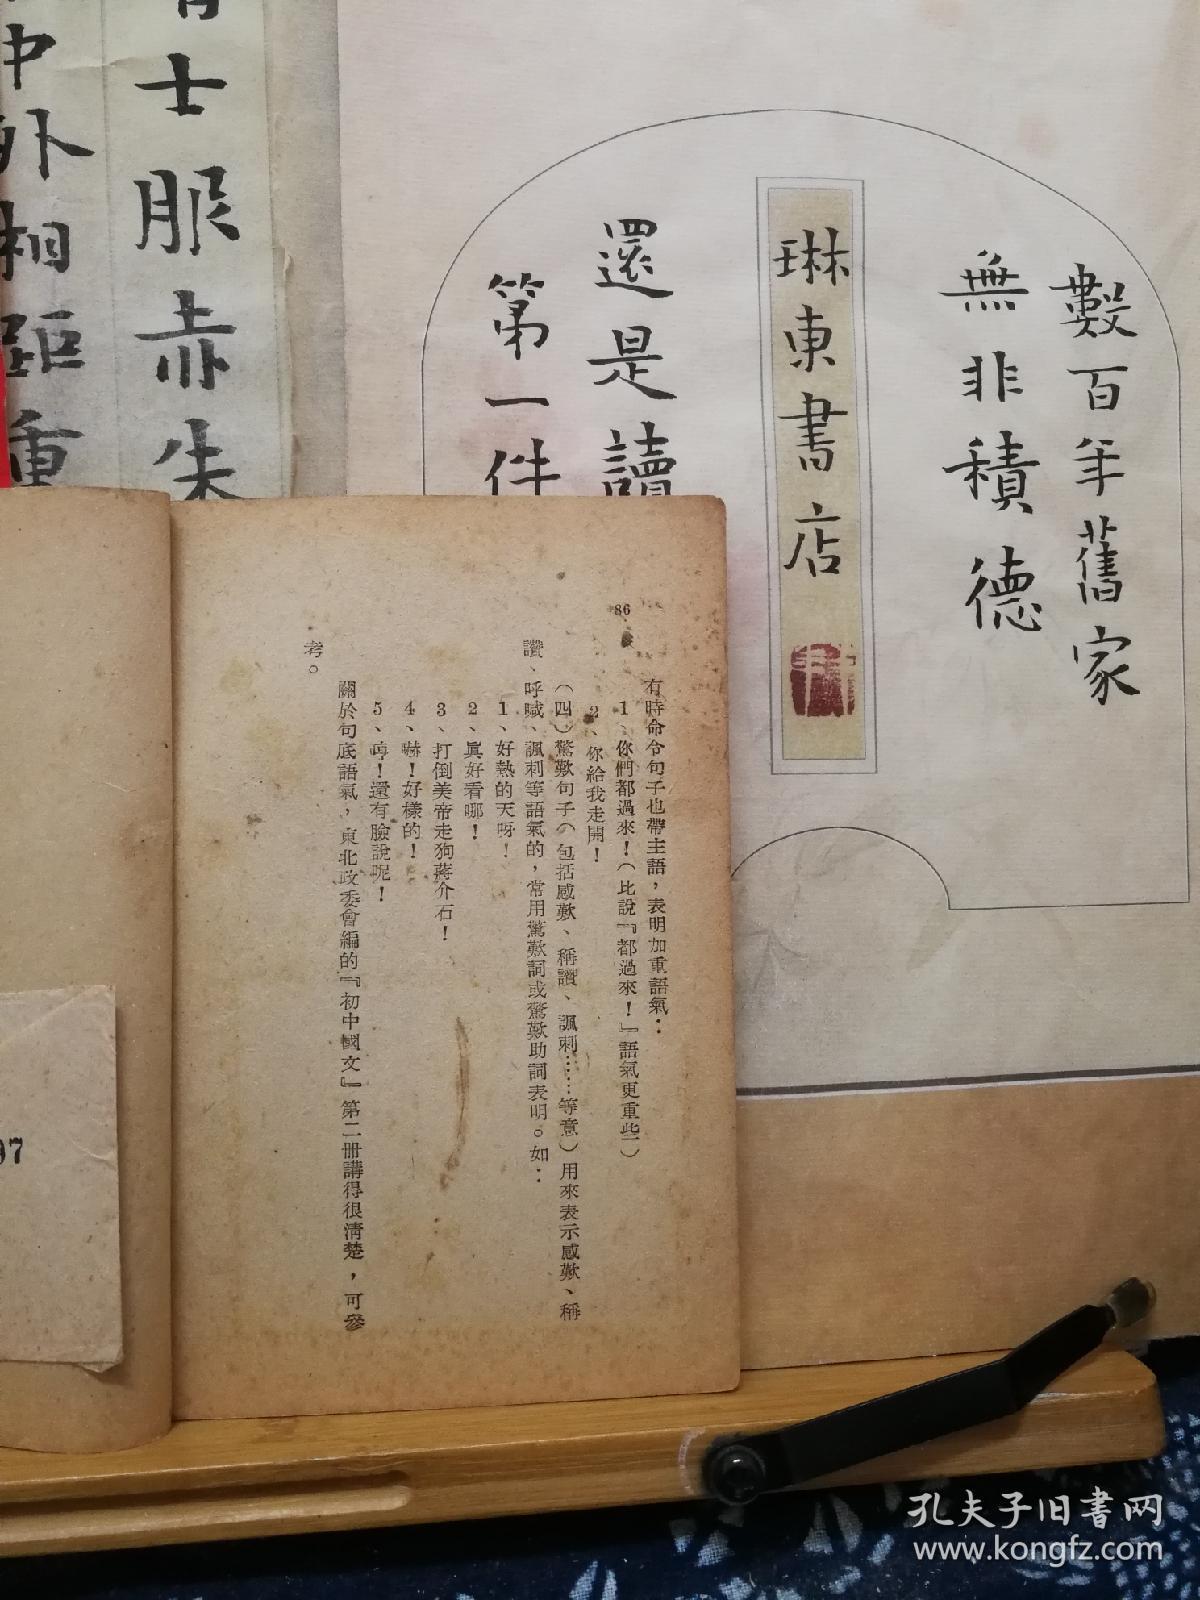 數百年舊家
無非積德
琳東書店
還是讀
第一件
士服赤朱
中外相距重
86
有時命令句子也帶主語，表明加重語氣：
1、你們都過來！（比說『都過來！』語氣更重些）
2、你給我走開！
（四）驚歎句子（包括感歎、稱讚、諷刺……等意）用來表示感歎、稱
讚、呼喊、諷刺等語氣的，常用驚歎詞或驚歎助詞表明。如：
1、好熱的天呀！
2、眞好看哪！
3、打倒美帝走狗蔣介石！
4、嚇！好樣的！
5、啍！還有臉說呢！
關於句底語氣，東北政委會編的『初中國文』第二冊講得很清楚，可參
考。
97
孔夫子旧书网
www.kongfz.com